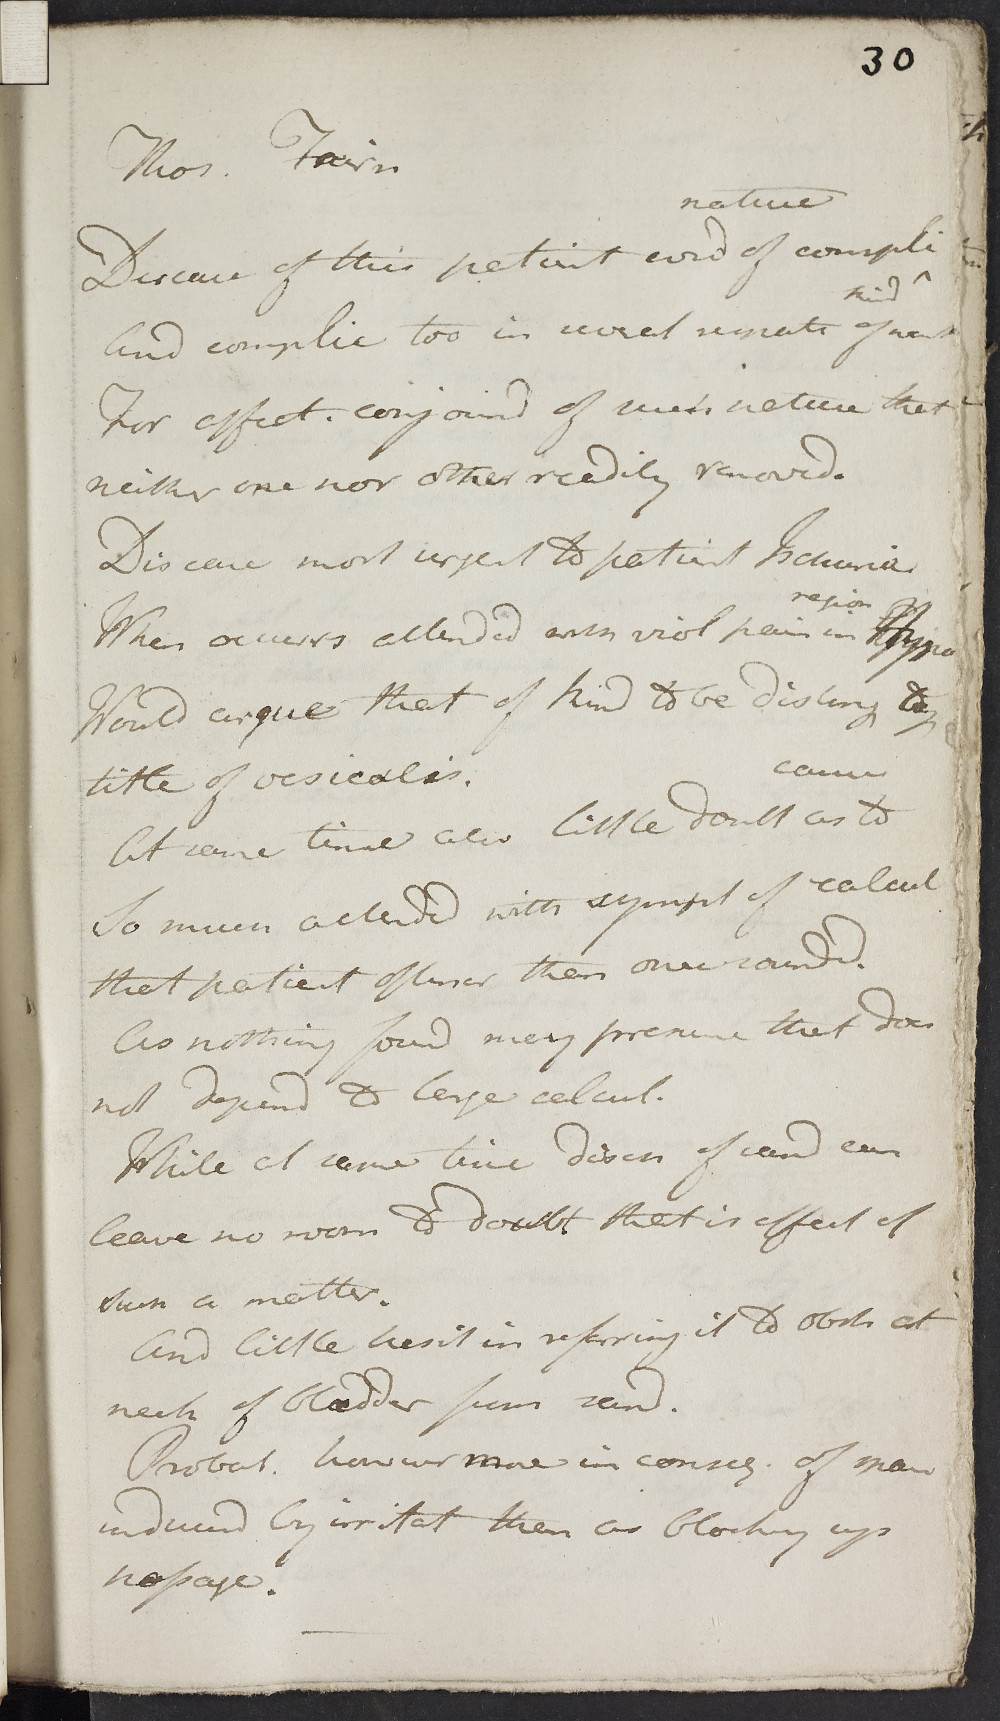 30
Thos. Fairn
nature
Disease of this patient evid of compli
kind ^
And complic too in several respects of
For affect. conjoind of such nature that
neither one nor other readily removed.
Disease most urgent to patient Ischuria
region
When occurrs attended with viol pain in Hypo
Would argue that of kind to be disting
title of vesicalis.
cause
At same time also little doubt as to
So much attended with sympt of calcul
that patient oftener then once sounded.
As nothing found may presume that does
not depend to large calcul.
While at same time disch of sand can
leave no room to doubt that is effect of
such a matter.
And little hesit in referring it to obstr at
neck of bladder from sand.
Probat. however more in conseq. of
induced by irritat then as blocking up
passage.